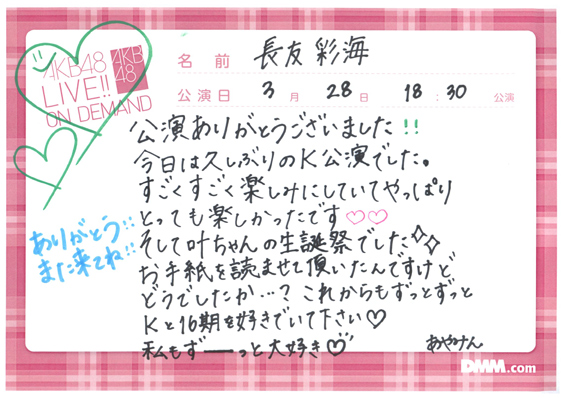 AKB48
LIVE!!
ON DEMAND
AKB
48
名前 長友彩海
公演日 3月 28日 18:30 公演
公演ありがとうございました!!
今日は久しぶりのK公演でした。
すごくすごく楽しみにしていてやっぱり
とっても楽しかったです♡♡
そして叶ちゃんの生誕祭でした
お手紙を読ませて頂いたんですけど
どうでしたか…? これからもずっとずっと
Kと16期を好きでいて下さい♡
私もずーーっと大好き♡
あやみん
ありがとう!!
また来てね!!
DMM.com